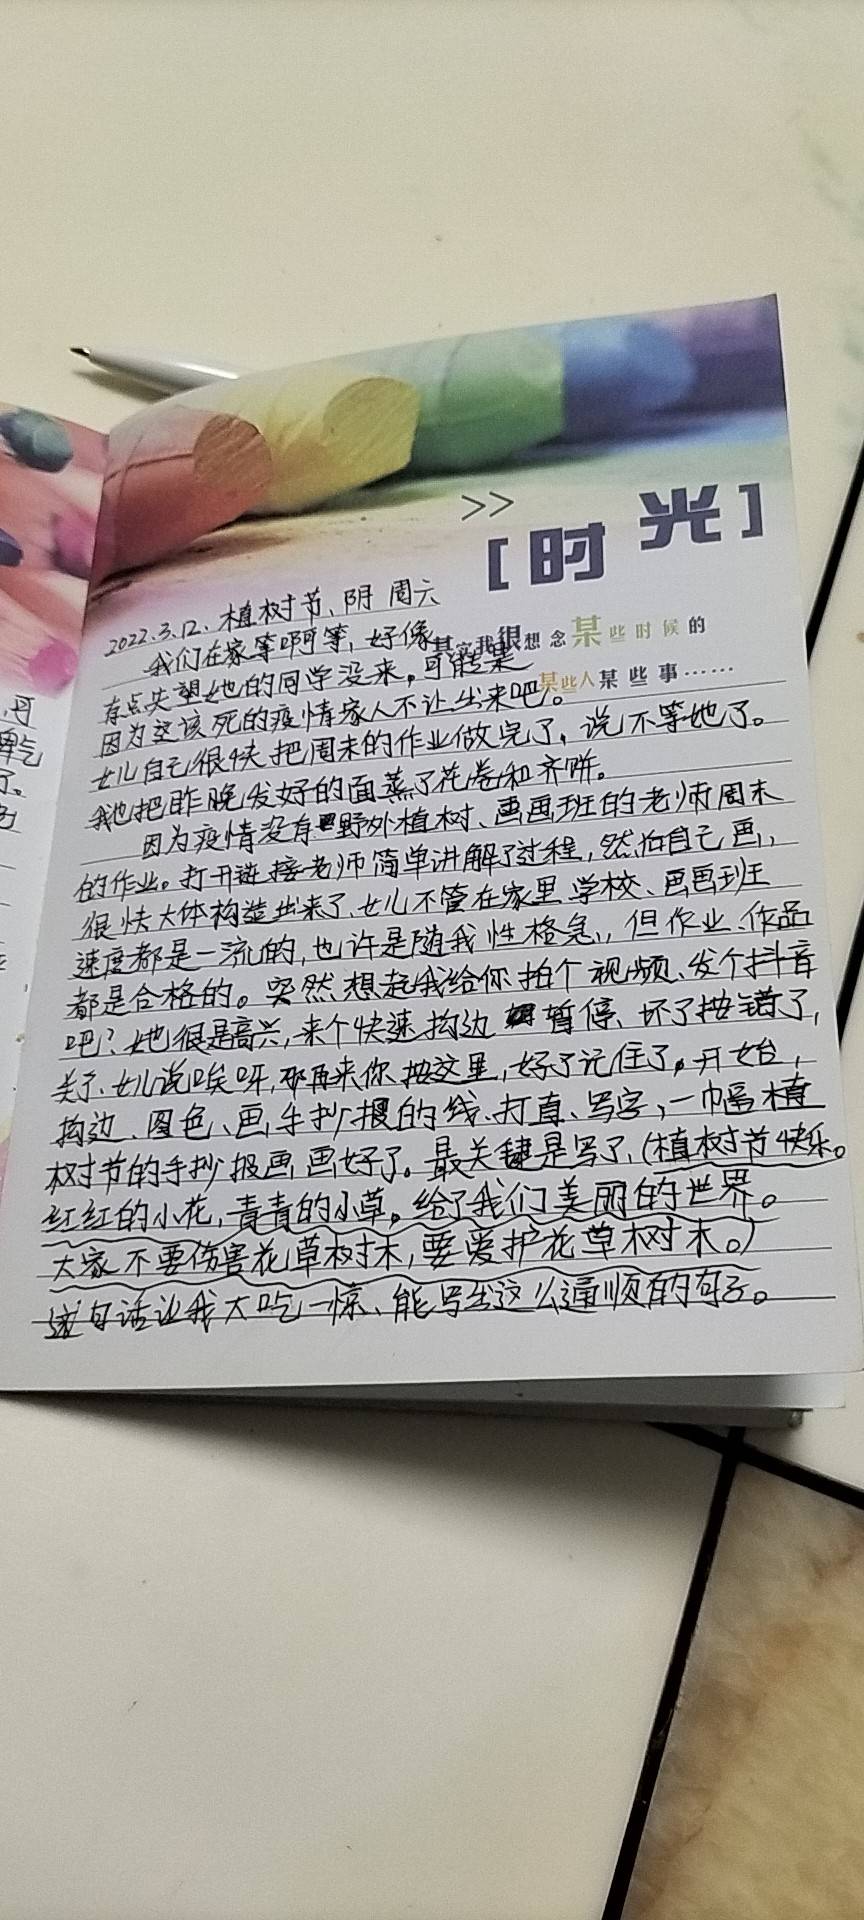 >>
[时光]
其实我很想念某些时候的
某些人某些事……
2022.3.12、植树节、阴 周六
我们在家等啊等，好像
有点失望她的同学没来。可能是
因为这该死的疫情家人不让出来吧。
女儿自己很快把周末的作业做完了，说不等她了。
我也把昨晚发好的面蒸了花卷和齐饼。
因为疫情没有野外植树、画画班的老师周末
的作业。打开链接老师简单讲解了过程，然后自己画，
很快大体构造出来了、女儿不管在家里学校、画画班
速度都是一流的，也许是随我性格急，但作业、作品
都是合格的。突然想起我给你拍个视频、发个抖音
吧？她很是高兴，来个快速构边 暂停、坏了按错了，
关了、女儿说哎呀，那再来你按这里，好了记住了。开始，
构边、图色、画手抄报的线、打直、写字，一幅植
树节的手抄报画画好了。最关键是写了，(植树节快乐。
红红的小花，青青的小草。给了我们美丽的世界。
大家不要伤害花草树木，要爱护花草树木。)
这句话让我大吃一惊、能写出这么通顺的句子。
可
脾气
了。